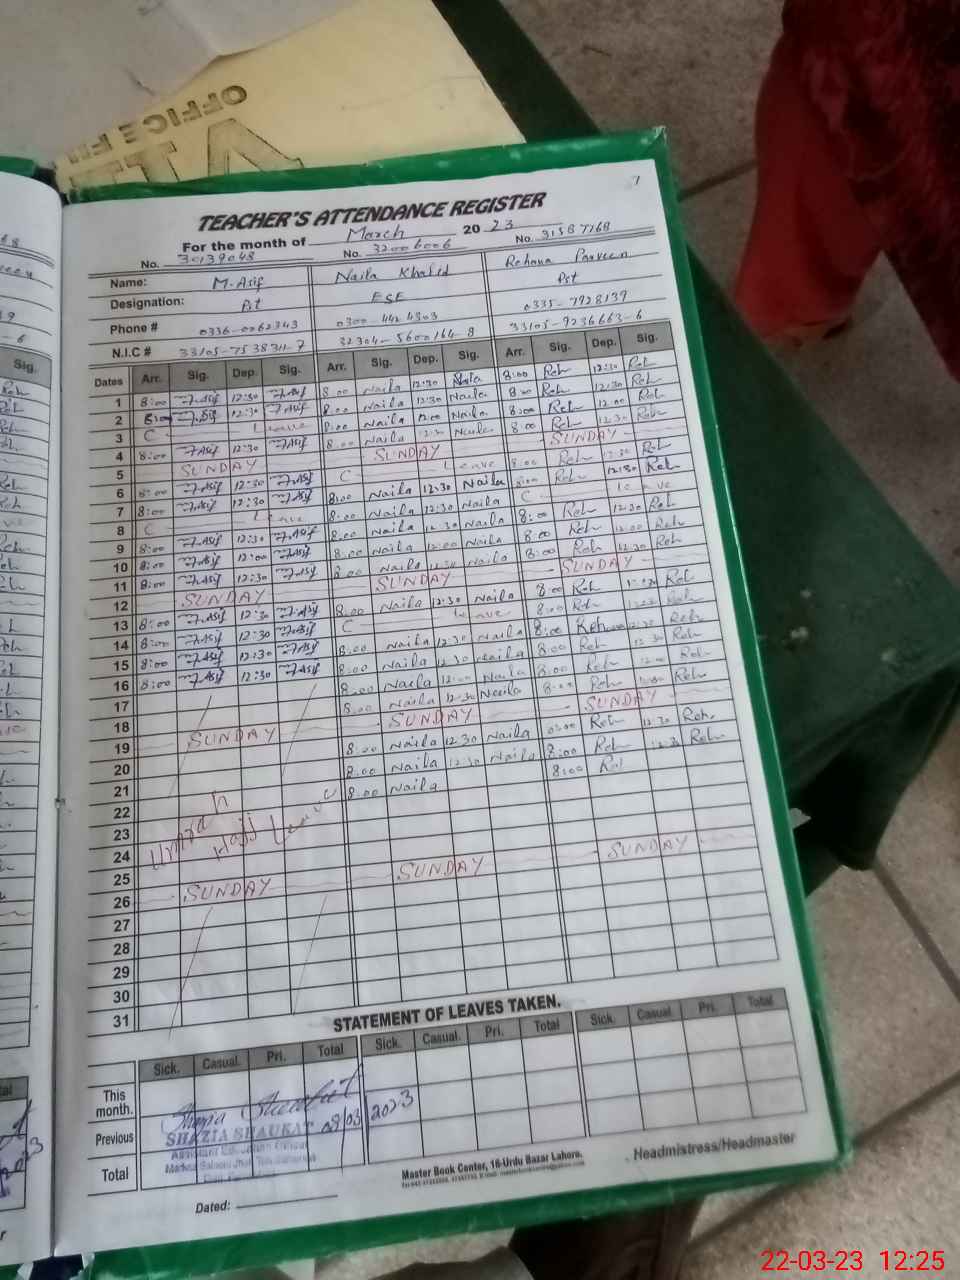 OFFICE FI
7
TEACHER'S ATTENDANCE REGISTER
For the month of March 2023
No. 30139048 No. 32006006 No. 31587768
Name: M-Asif Naila Khalid Rehana Parveen
Designation: Pst ESE Pst
Phone # 0336-0062343 0300-4424303 0335-7928139
N.I.C # 33105-7538311-7 32304-5600164-8 33105-9236663-6
Dates Arr. Sig. Dep. Sig. Arr. Sig. Dep. Sig. Arr. Sig. Dep. Sig.
1 8:00 Asif 12:30 Asif 8:00 Naila 12:30 Naila 8:00 Reh 12:30 Reh
2 8:00 Asif 12:30 Asif 8:00 Naila 12:30 Naila 8:00 Reh 12:30 Reh
3 C Leave 8:00 Naila 12:00 Naila 8:00 Reh 12:00 Reh
4 8:00 Asif 12:30 Asif 8:00 Naila 12:30 Naila 8:00 Reh 12:30 Reh
5 SUNDAY SUNDAY SUNDAY
6 8:00 Asif 12:30 Asif C Leave 8:00 Reh 12:30 Reh
7 8:00 Asif 12:30 Asif 8:00 Naila 12:30 Naila 8:00 Reh 12:30 Reh
8 C Leave 8:00 Naila 12:30 Naila C Leave
9 8:00 Asif 12:30 Asif 8:00 Naila 12:30 Naila 8:00 Reh 12:30 Reh
10 8:00 Asif 12:00 Asif 8:00 Naila 12:00 Naila 8:00 Reh 12:00 Reh
11 8:00 Asif 12:30 Asif 8:00 Naila 12:30 Naila 8:00 Reh 12:30 Reh
12 SUNDAY SUNDAY SUNDAY
13 8:00 Asif 12:30 Asif 8:00 Naila 12:30 Naila 8:00 Reh Reh
14 8:00 Asif 12:30 Asif C Leave 8:00 Reh Reh
15 8:00 Asif 12:30 Asif 8:00 Naila 12:30 Naila 8:00 Reh 12:30 Reh
16 8:00 Asif 12:30 Asif 8:00 Naila 12:30 Naila 8:00 Reh 12:30 Reh
17 8:00 Naila 12:00 Naila 8:00 Reh 12:00 Reh
18 8:00 Naila 12:30 Naila 8:00 Reh Reh
19 SUNDAY SUNDAY SUNDAY
20 8:00 Naila 12:30 Naila 8:00 Reh 12:30 Reh
21 8:00 Naila 12:30 Naila 8:00 Reh 12:30 Reh
22 8:00 Naila 8:00 Reh
23 Umrah
24 Hajj Leave
25
26 SUNDAY SUNDAY SUNDAY
27
28
29
30
31
STATEMENT OF LEAVES TAKEN.
Sick. Casual. Pri. Total Sick. Casual. Pri. Total Sick. Casual. Pri. Total
This month.
Previous
Total
Shazia Shaukat
09/03/2023
SHAZIA SHAUKAT
Assistant Education Officer
Dated:
Master Book Center, 16-Urdu Bazar Lahore.
Headmistress/Headmaster
22-03-23 12:25